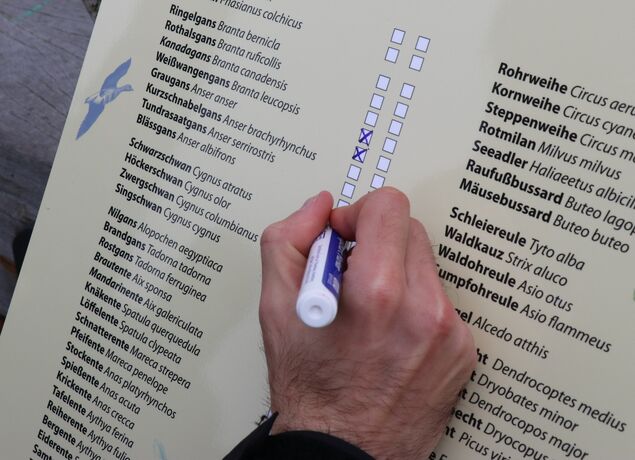 Phasianus colchicus
Ringelgans Branta bernicla
Rothalsgans Branta ruficollis
Kanadagans Branta canadensis
Weißwangengans Branta leucopsis
Graugans Anser anser
Kurzschnabelgans Anser brachyrhynchus
Tundrasaatgans Anser serrirostris
Blässgans Anser albifrons
Schwarzschwan Cygnus atratus
Höckerschwan Cygnus olor
Zwergschwan Cygnus columbianus
Singschwan Cygnus cygnus
Nilgans Alopochen aegyptiaca
Brandgans Tadorna tadorna
Rostgans Tadorna ferruginea
Brautente Aix sponsa
Mandarinente Aix galericulata
Knäkente Spatula querquedula
Löffelente Spatula clypeata
Schnatterente Mareca strepera
Pfeifente Mareca penelope
Stockente Anas platyrhynchos
Spießente Anas acuta
Krickente Anas crecca
Tafelente Aythya ferina
Reiherente Aythya fuli
Bergente Aythya
Eiderente
Samt
Rohrweihe Circus aer
Kornweihe Circus cyane
Steppenweihe Circus m
Rotmilan Milvus milvus
Seeadler Haliaeetus albicill
Raufußbussard Buteo lagop
Mäusebussard Buteo buteo
Schleiereule Tyto alba
Waldkauz Strix aluco
Waldohreule Asio otus
umpfohreule Asio flammeus
el Alcedo atthis
ht Dendrocoptes medius
ht Dryobates minor
ht Dendrocopos major
echt Dryocopus
Picus viri